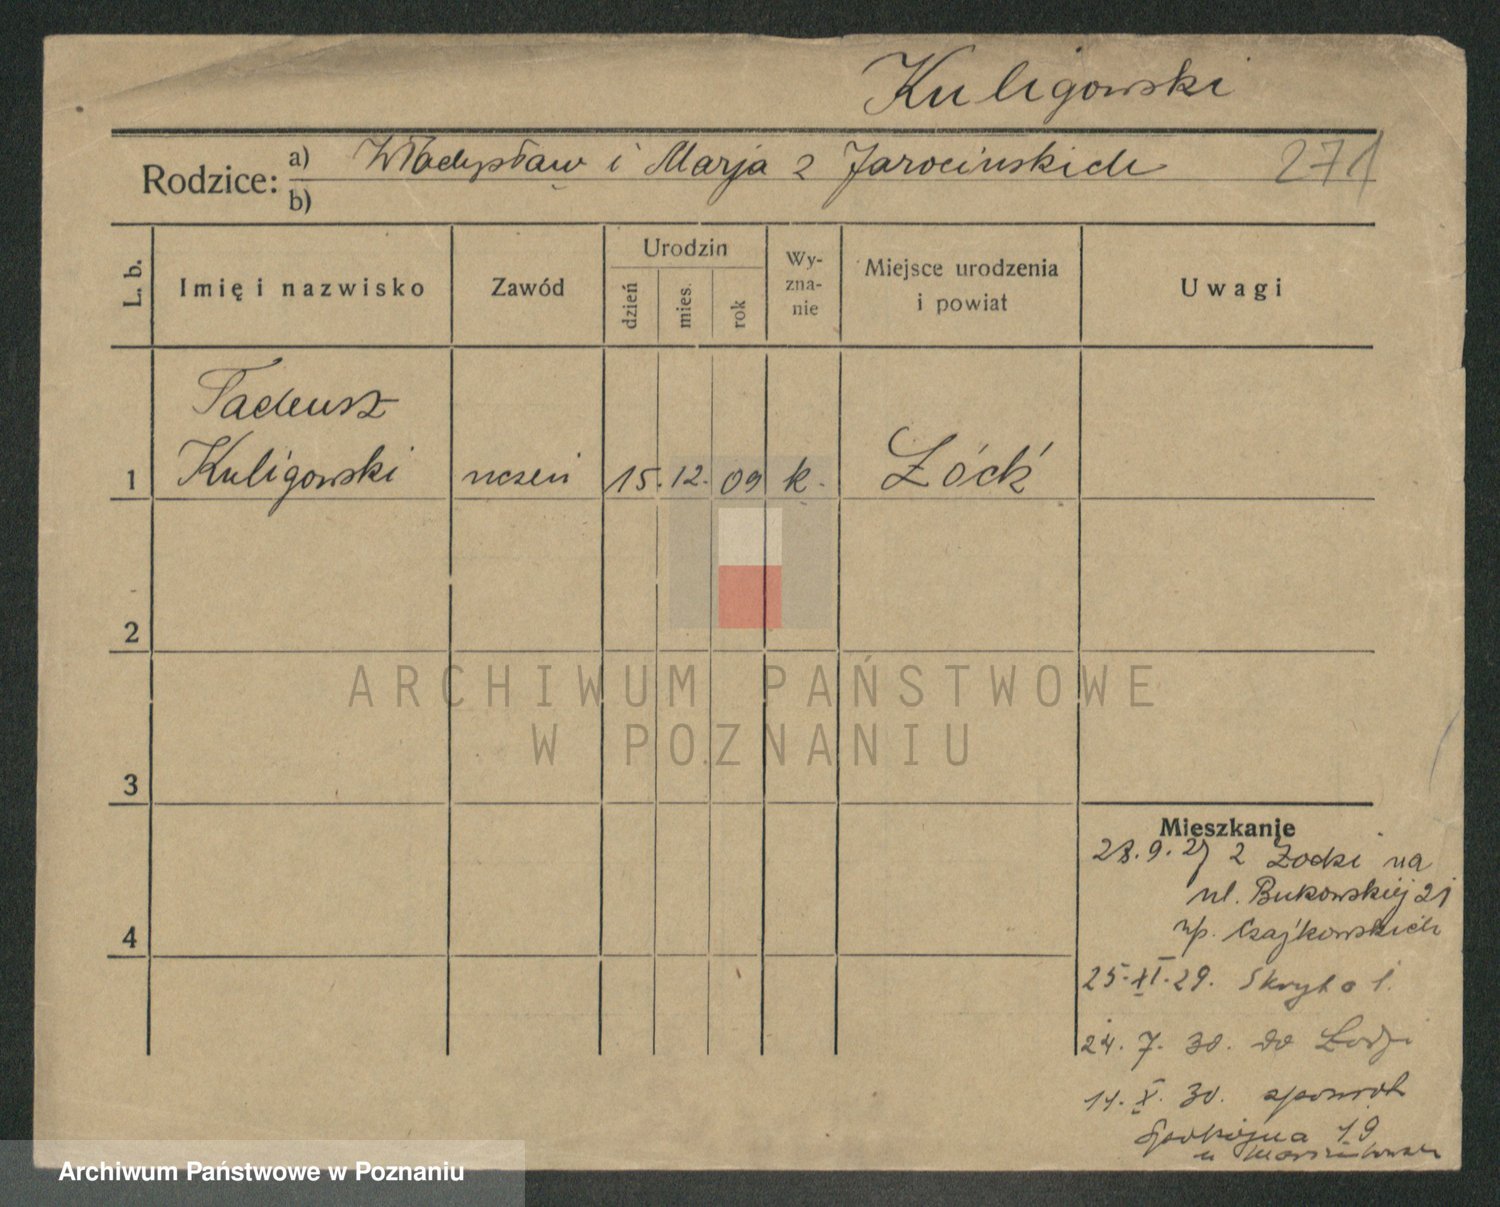 Kuligowski
Rodzice: a) Władysław i Marja z Jarocińskich 271
b)
L. b. Imię i nazwisko Zawód Urodzin dzień mies. rok Wyznanie Miejsce urodzenia i powiat Uwagi
Tadeusz
1 Kuligowski uczeń 15. 12. 09 k. Łódź
2
ARCHIWUM PAŃSTWOWE
W POZNANIU
3
Mieszkanie
28. 9. 27 z Łodzi na
ul. Bukowskiej 21
4 up. Czajkowskich
25. XI. 29. Skryta 1.
24. 7. 30. do Łodzi
14. X. 30. spowrot
Spokojna 19
u
Archiwum Państwowe w Poznaniu